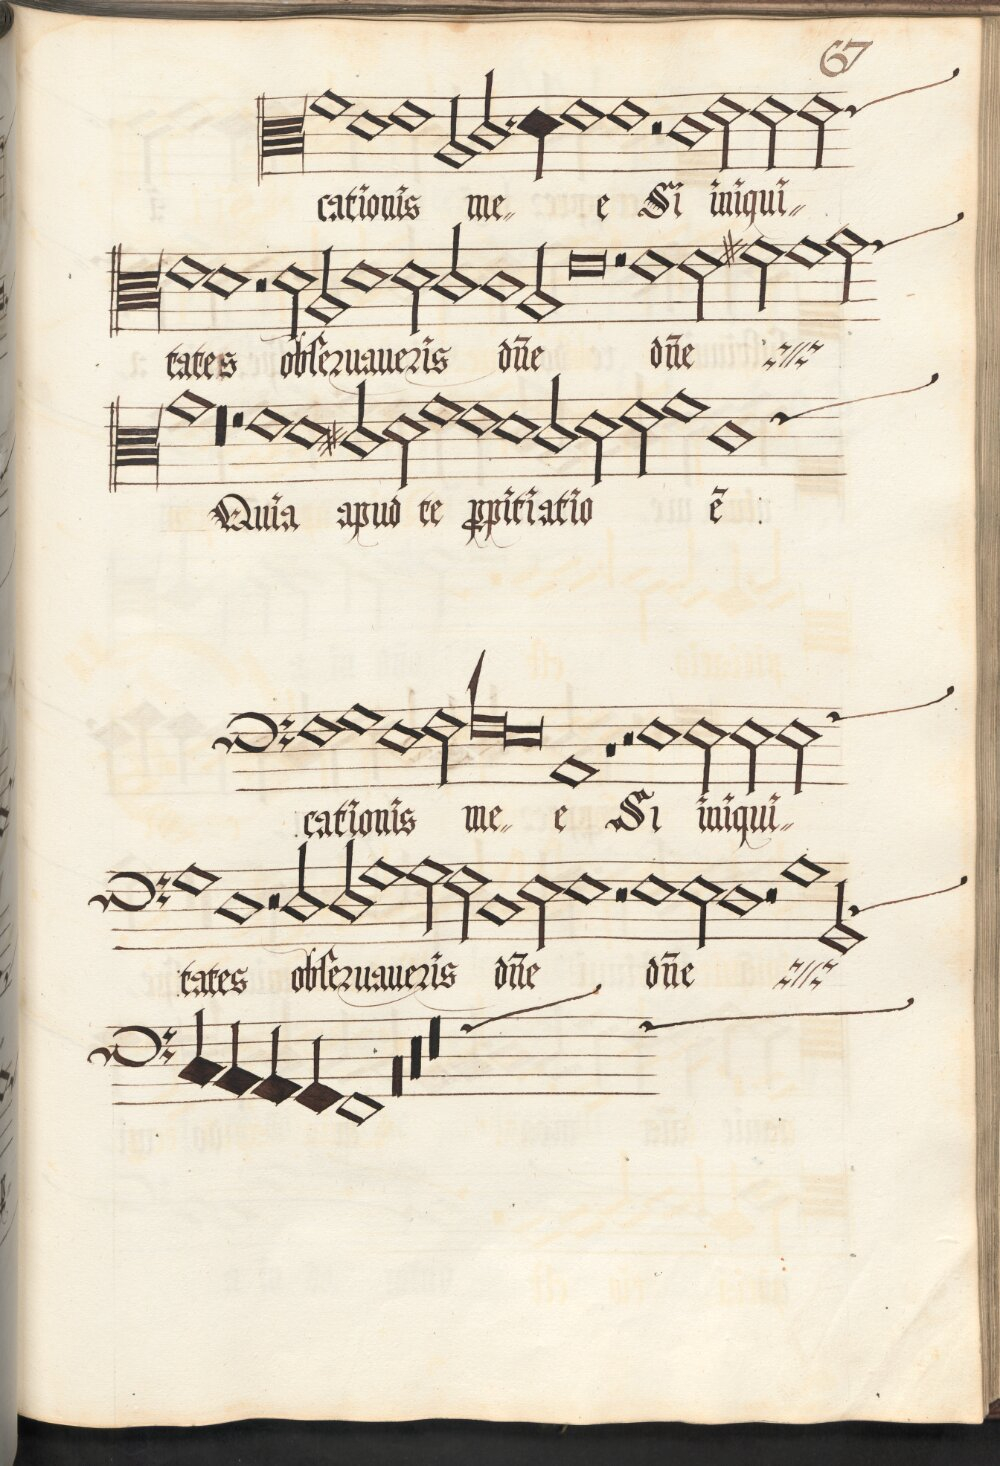 67
cationis me„ e Si iniqui„
tates obseruaueris dn̄e dn̄e
Quia apud te ꝓpitiatio ē .
cationis me„ e Si iniqui„
tates obseruaueris dn̄e dn̄e